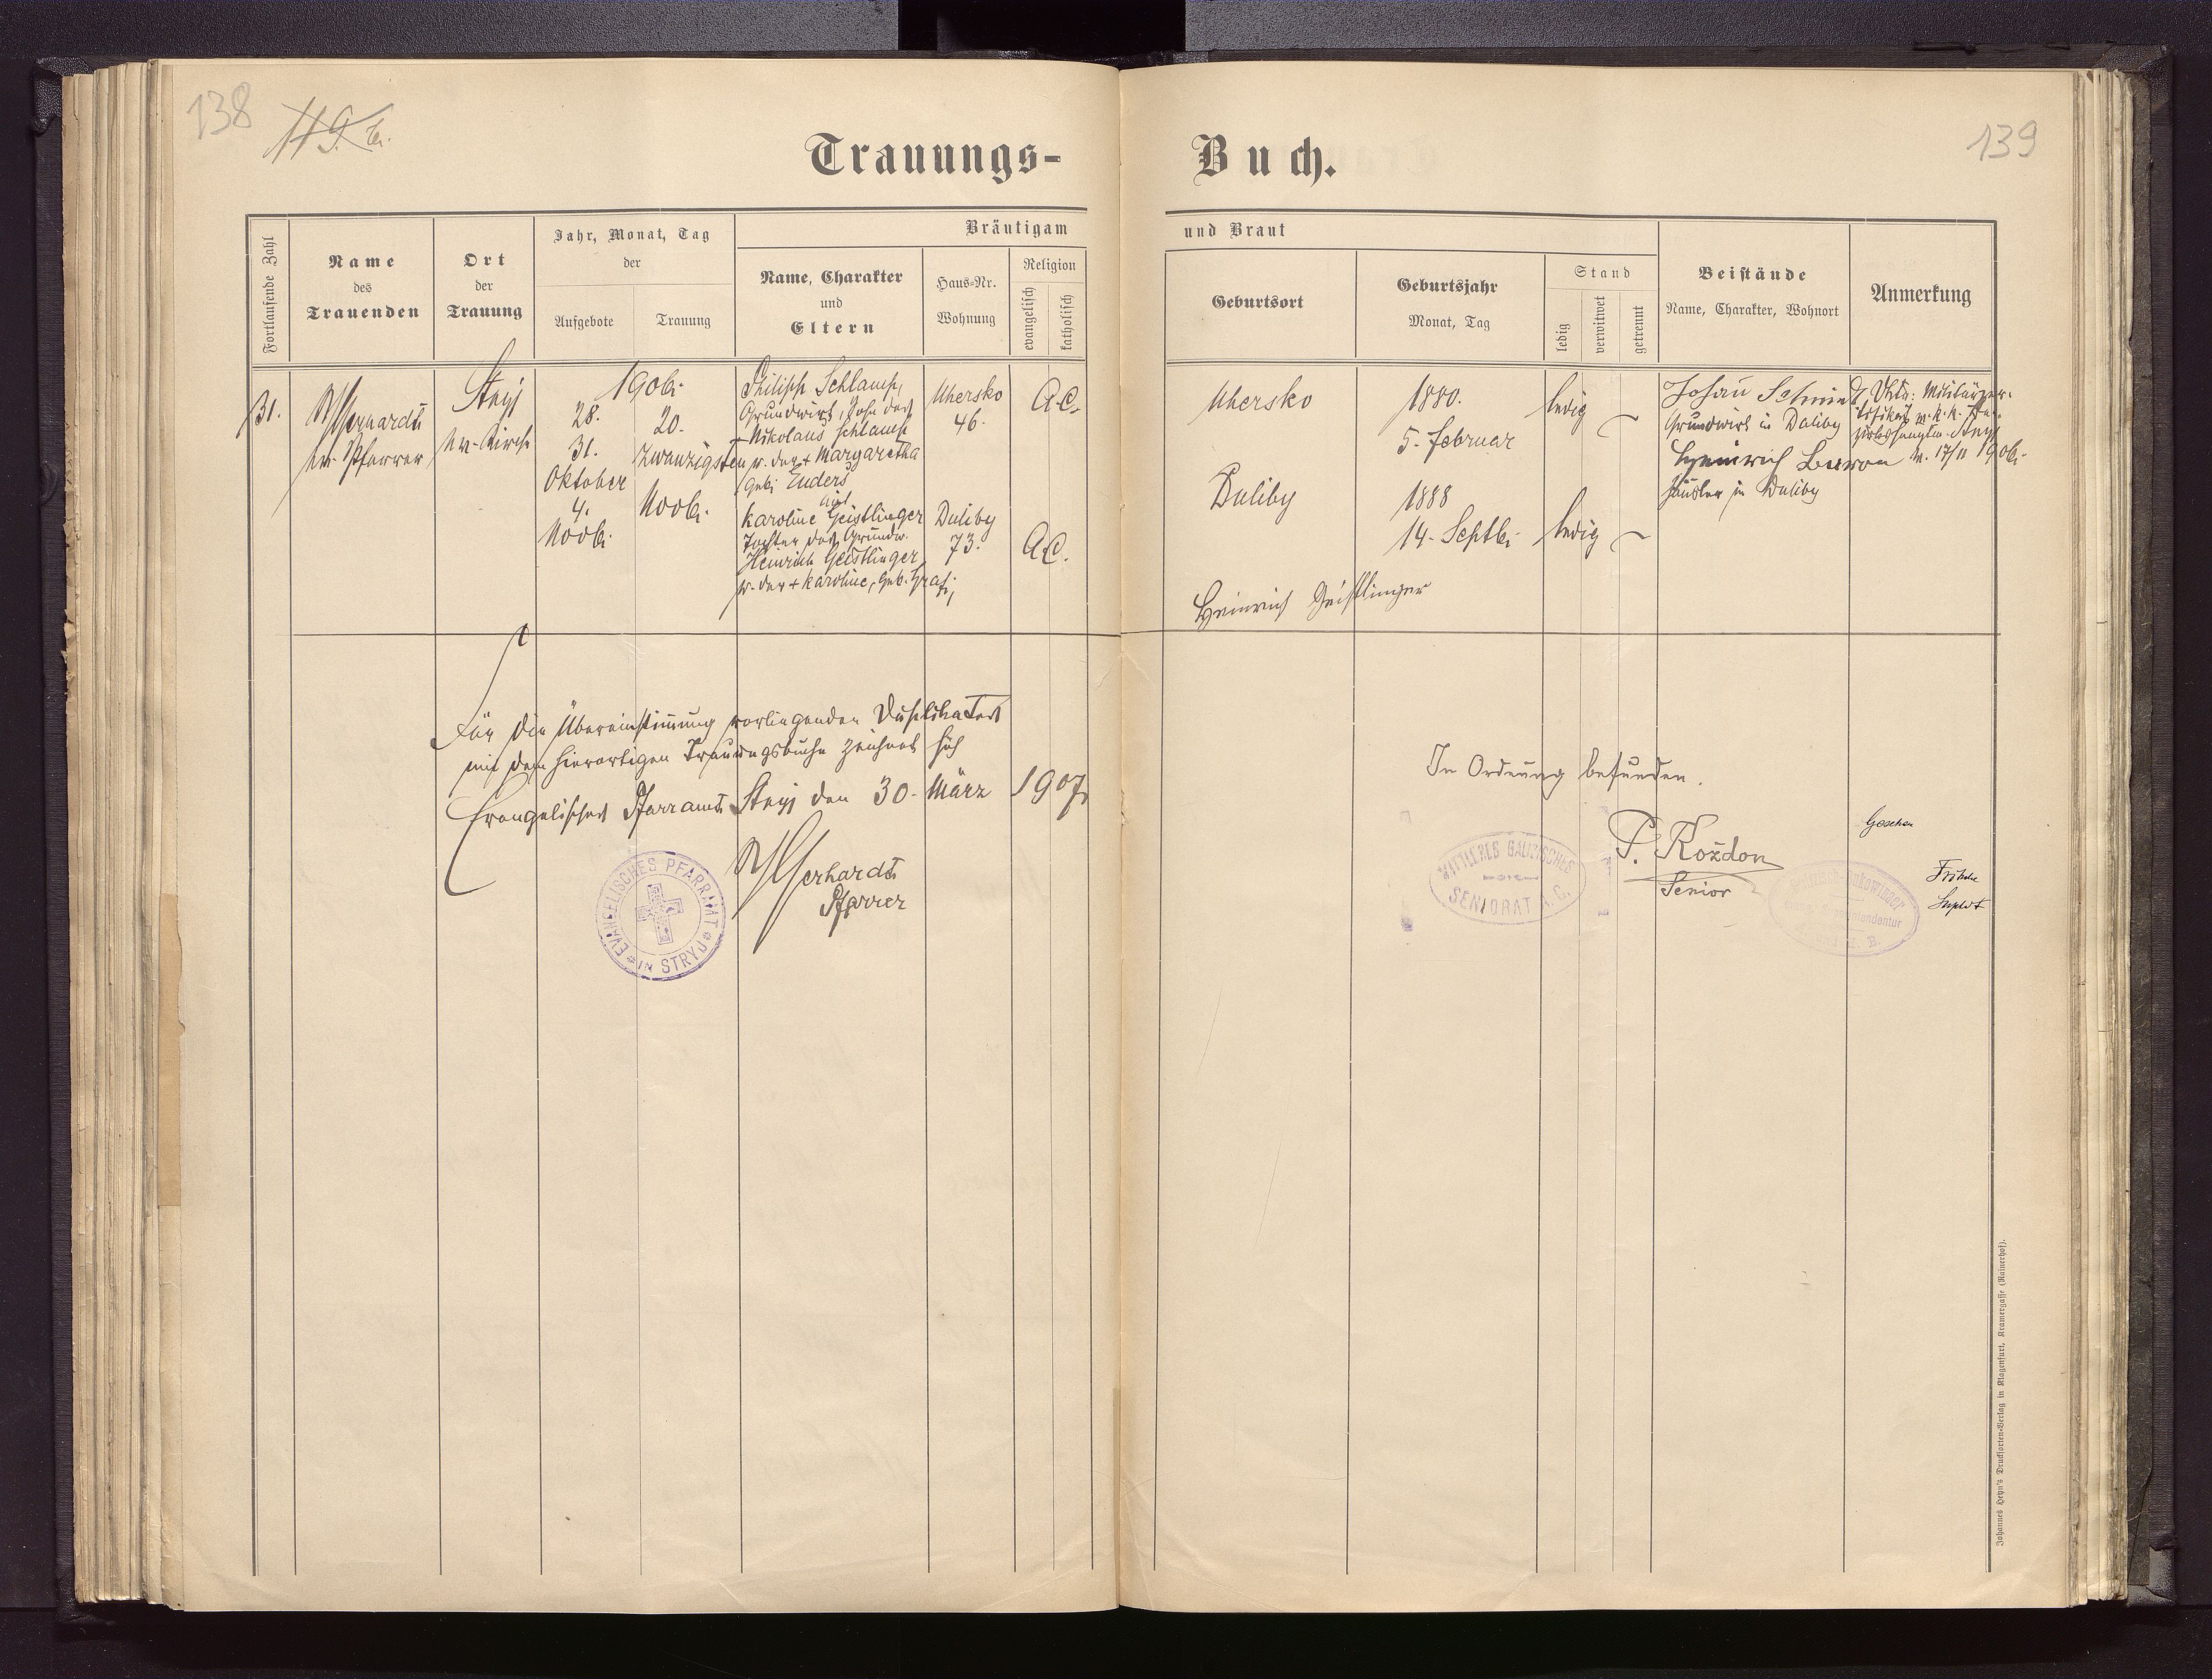 138
119. b.
139
Trauungs-
Buch.
Fortlaufende Zahl
Name
des
Trauenden
Ort
der
Trauung
Jahr, Monat, Tag
der
Aufgebote
Trauung
Bräutigam
Name, Charakter
und
Eltern
Haus-Nr.
Wohnung
Religion
evangelisch
katholisch
und Braut
Geburtsort
Geburtsjahr
Monat, Tag
Stand
ledig
verwitwet
getrennt
Beistände
Name, Charakter, Wohnort
Anmerkung
31.
ev. Pfarrer
Stryj
ev. Kirche
1906.
28.
31.
Oktober
4.
Novbr.
20.
zwanzigsten
Novbr.
Philipp Schlamp,
Grundwirt, Sohn des
+ Nikolaus Schlamp
u. der + Margaretha
geb. Enders
mit
Karoline Geistlinger
Tochter des Grundw.
Heinrich Geistlinger
u. der + Karoline, geb. Graf.
Uhersko
46.
Duliby
73.
A.C.
A.C.
Uhersko
Duliby
1880.
5. Februar
1888
14. Septbr.
ledig
ledig
Heinrich Geistlinger
Johan Schmidt
Grundwirt in Duliby
Heinrich
Häusler in Duliby
Stryj
v. 17/11 1906.
Für die Übereinstimmung vorliegenden Duplikates
mit dem hierortigen Trauungsbuche zeichnet sich
Evangelisches Pfarramt Stryj den 30. März 1907.
Pfarrer
EVANGELISCHES PFARRAMT
IN STRYJ
In Ordnung befunden.
P. Rożdon
Senior
MITTLERES GALIZISCHES
SENIORAT A.C.
Gesehen
Fritsche
Supdt
Johannes Heyn's Drucksorten-Verlag in Klagenfurt, Kramergasse (Rainerhof).